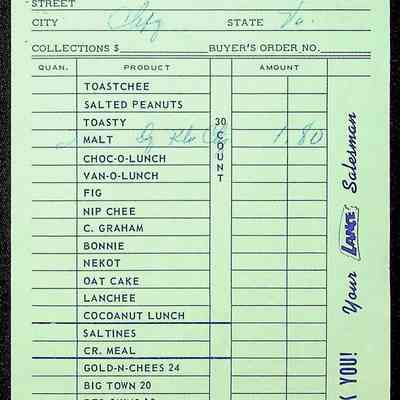 STREET
CITY STATE Va.
COLLECTIONS $ BUYER'S ORDER NO.
QUAN. PRODUCT AMOUNT
TOASTCHEE
SALTED PEANUTS
TOASTY
MALT 1.80
CHOC-O-LUNCH
VAN-O-LUNCH
FIG
NIP CHEE
C. GRAHAM
BONNIE
NEKOT
OAT CAKE
LANCHEE
COCOANUT LUNCH
SALTINES
CR. MEAL
GOLD-N-CHEES 24
BIG TOWN 20
30 COUNT
YOU!
Your LANCE Salesman